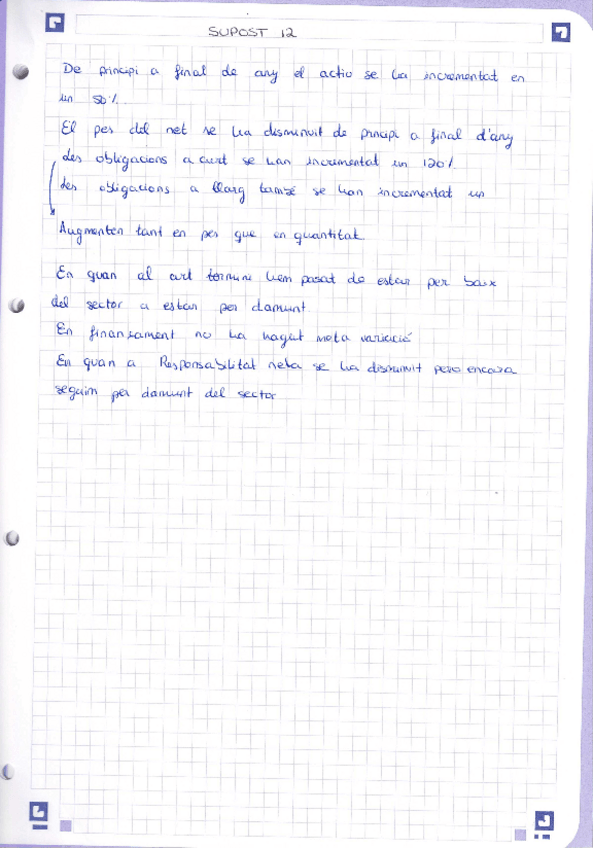 SUPOST 12
De principi a final de any el actiu se ha incrementat en
un 50%.
El pes del net se ha disminuit de principi a final d'any
Les obligacions a curt se han incrementat un 120%
Les obligacions a llarg també se han incrementat un
Augmenten tant en pes que en quantitat.
En quan al curt termini hem pasat de estar per baix
del sector a estar per damunt.
En finansament no ha hagut molta variació
En quan a Responsabilitat neta se ha disminuit pero encara
seguim per damunt del sector